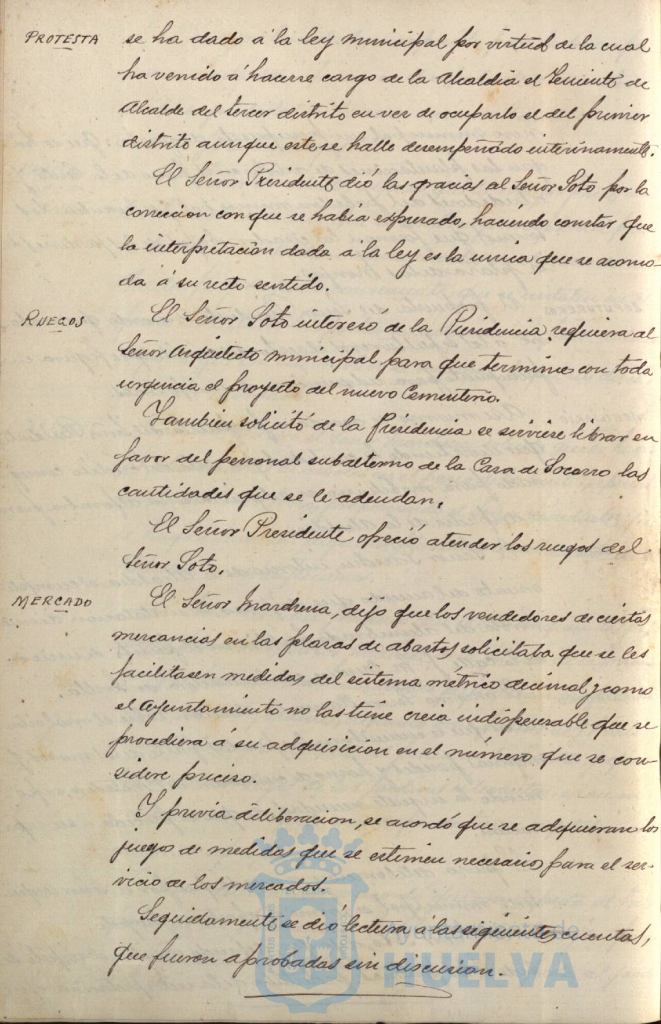 PROTESTA
se ha dado á la ley municipal por virtud de la cual
ha venido á hacerse cargo de la Alcaldia el Teniente de
Alcalde del tercer distrito en vez de ocuparlo el del primer
distrito aunque este se halle desempeñado interinamente.
El Señor Presidente dió las gracias al Señor Soto por la
correccion con que se habia expresado, haciendo constar que
la interpretación dada á la ley es la unica que se acomo-
da á su recto sentido.
RUEGOS
El Señor Soto interesó de la Presidencia requiera al
Señor Arquitecto municipal para que termine con toda
urgencia el proyecto del nuevo Cementerio.
Tambien solicitó de la Presidencia se sirviese librar en
favor del personal subalterno de la Casa de Socorro las
cantidades que se le adeudan.
El Señor Presidente ofreció atender los ruegos del
Señor Soto.
MERCADO
El Señor Marchena, dijo que los vendedores de ciertas
mercancias en las plazas de abastos solicitaba que se les
facilitasen medidas del sistema métrico decimal y como
el Ayuntamiento no las tiene creia indispensable que se
procediera á su adquisicion en el número que se con-
sidere preciso.
Y previa deliberacion, se acordó que se adquieran los
juegos de medidas que se estimen necesario para el ser-
vicio de los mercados.
Seguidamente se dió lectura a las siguientes cuentas,
que fueron aprobadas sin discusion.
HUELVA